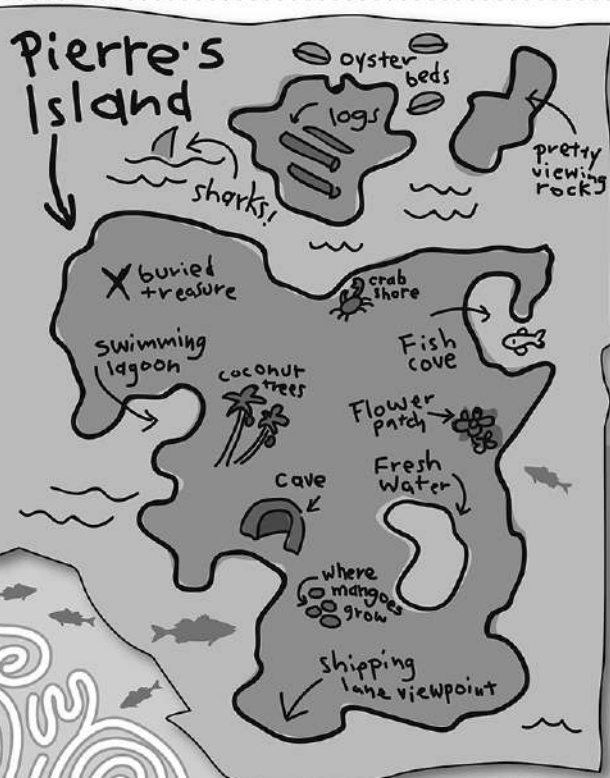 Pierre's
Island
oyster
beds
logs
pretty
viewing
rock
sharks!
X buried
treasure
crab
shore
swimming
lagoon
Fish
cove
coconut
trees
Flower
patch
Fresh
Water
cave
where
mangoes
grow
shipping
lane viewpoint